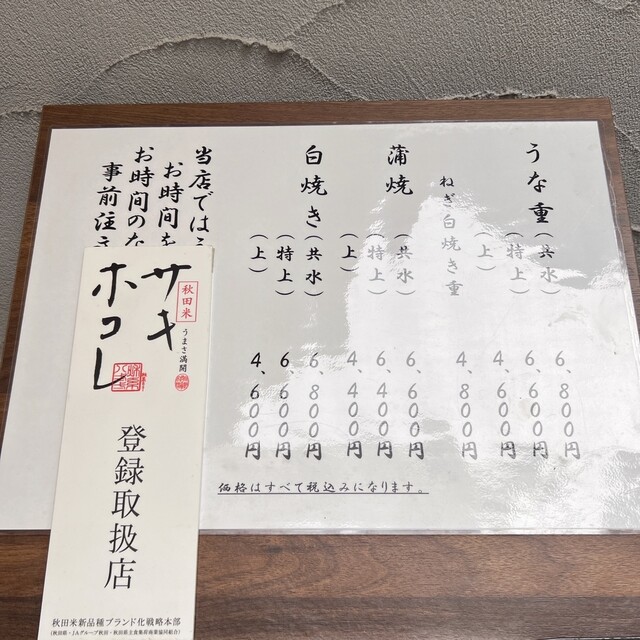 うな重（共水）　6、800円
（特上）　6、600円
（上）　4、600円
ねぎ白焼き重　4、800円
蒲焼（共水）　6、600円
（特上）　6、400円
（上）　4、400円
白焼き（共水）　6、800円
（特上）　6、600円
（上）　4、600円
価格はすべて税込みになります。
当店では
お時間を
お時間のな
事前注
秋田米
うまさ満開
サキ
ホコレ
登録取扱店
秋田米新品種ブランド化戦略本部
(秋田県・JAグループ秋田・秋田県主食集荷商業協同組合)